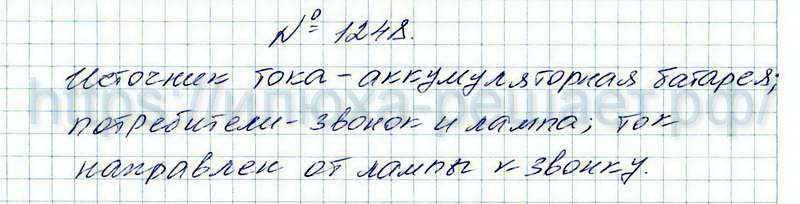 № 1248.
Источник тока - аккумуляторная батарея;
потребители - звонок и лампа; ток
направлен от лампы к звонку.